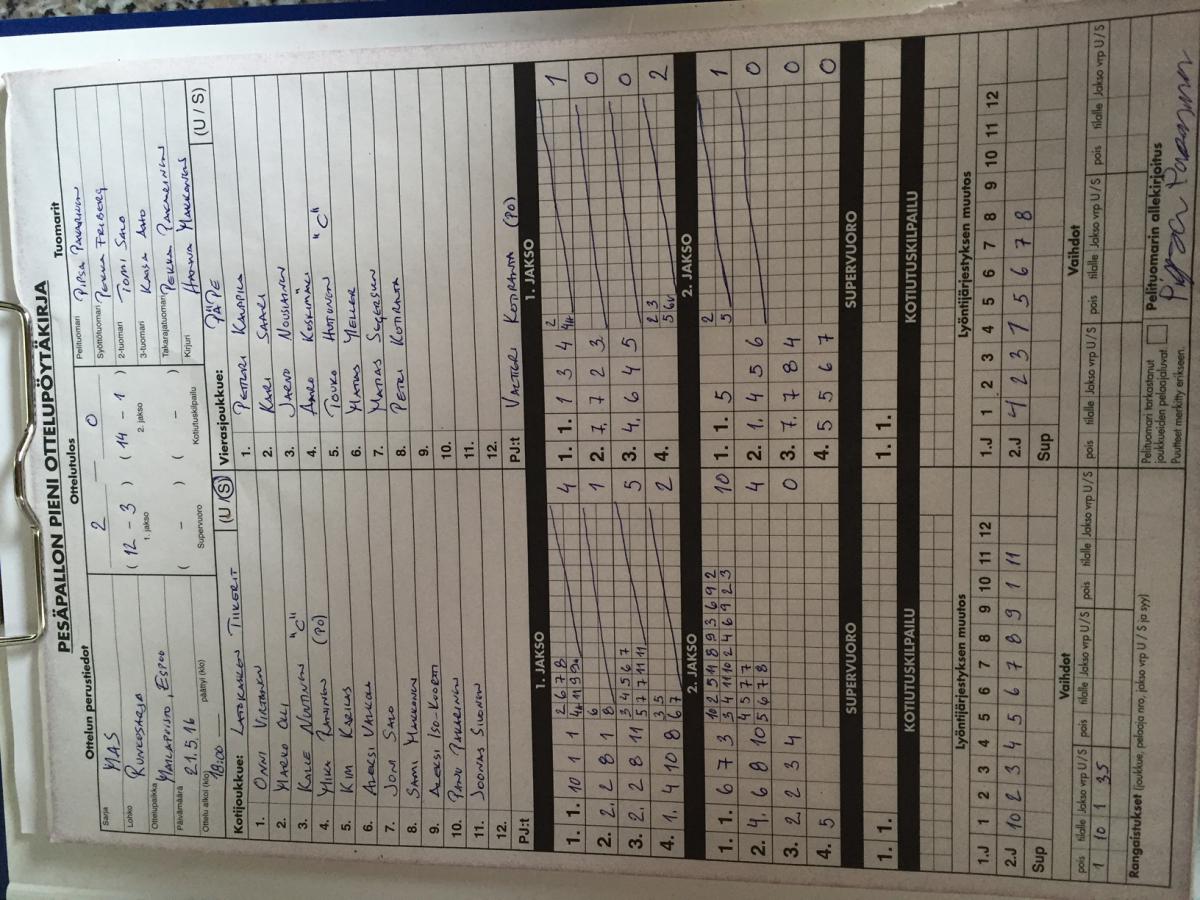 PESÄPALLON PIENI OTTELUPÖYTÄKIRJA
Ottelun perustiedot
Sarja
Lohko RUNKOSARJA
Ottelupaikka MYLLYPURO, ESPOO
Päivämäärä 21.5.16
Ottelu alkoi (klo) 18:00 päättyi (klo)
Ottelutulos
2 0
( 12 - 3 ) ( 14 - 1 )
1. jakso 2. jakso
( - ) ( - )
Supervuoro Kotiutuskilpailu
Tuomarit
Pelituomari PIPSA PAKARINEN
Syöttötuomari PEKKA FRIBERG
2-tuomari TOMI SALO
3-tuomari KAISA AHO
Takarajatuomari PEKKA PAKARINEN
Kirjuri HANNA MAKKONEN
Kotijoukkue: LATOKASKEN TIIKERIT (U / S)
1. ONNI VIRTANEN
2. MARKO OLLI
3. KALLE NUUTINEN "C"
4. MIKA RANINEN (PO)
5. KIM KARILAS
6. ALEKSI
7. JONI SALO
8. SAMI MAKKONEN
9. ALEKSI ISO-KUORTTI
10. PANU PAKARINEN
11. JOONAS SILVONEN
12.
PJ:t
Vierasjoukkue: PÄPE (U / S)
1. PETTERI KAUPPILA
2. KARI SAARI
3. JARNO NOUSIAINEN
4. AARO KOSKIMÄKI "C"
5. TOUKO HUTUNEN
6. MATIAS MELLER
7. MATIAS SEGERSVEN
8. PETRI KOTIRANTA
9.
10.
11.
12.
PJ:t VALTTERI KOTIRANTA (PO)
1. JAKSO
1. 1. 10 1 1 4
2. 2. 2 8 1 1
3. 2. 2 8 11 5
4. 1. 4 10 8 2
1. JAKSO
1. 1. 1 3 4 1
2. 7. 7 2 3 0
3. 4. 6 4 5 0
4. 2
2. JAKSO
1. 1. 6 7 3 10
2. 4. 6 8 10 4
3. 2. 2 3 4 0
4. 5
2. JAKSO
1. 1. 5 1
2. 1. 4 5 6 0
3. 7. 7 8 4 0
4. 5 5 6 7 0
SUPERVUORO
1. 1.
SUPERVUORO
1. 1.
KOTIUTUSKILPAILU
KOTIUTUSKILPAILU
Lyöntijärjestyksen muutos
1.J 1 2 3 4 5 6 7 8 9 10 11 12
2.J 10 2 3 4 5 6 7 8 9 1 11
Sup
Lyöntijärjestyksen muutos
1.J 1 2 3 4 5 6 7 8 9 10 11 12
2.J 4 2 3 1 5 6 7 8
Sup
Vaihdot
pois tilalle Jakso vrp U/S pois tilalle Jakso vrp U/S pois tilalle Jakso vrp U/S
1 10 1 35
Vaihdot
pois tilalle Jakso vrp U/S pois tilalle Jakso vrp U/S pois tilalle Jakso vrp U/S
Rangaistukset (joukkue, pelaaja nro, jakso vrp U / S ja syy)
Pelituomari tarkastanut
joukkueiden pelaajaluvat
Puutteet merkitty erikseen.
Pelituomarin allekirjoitus
Pipsa Pakarinen